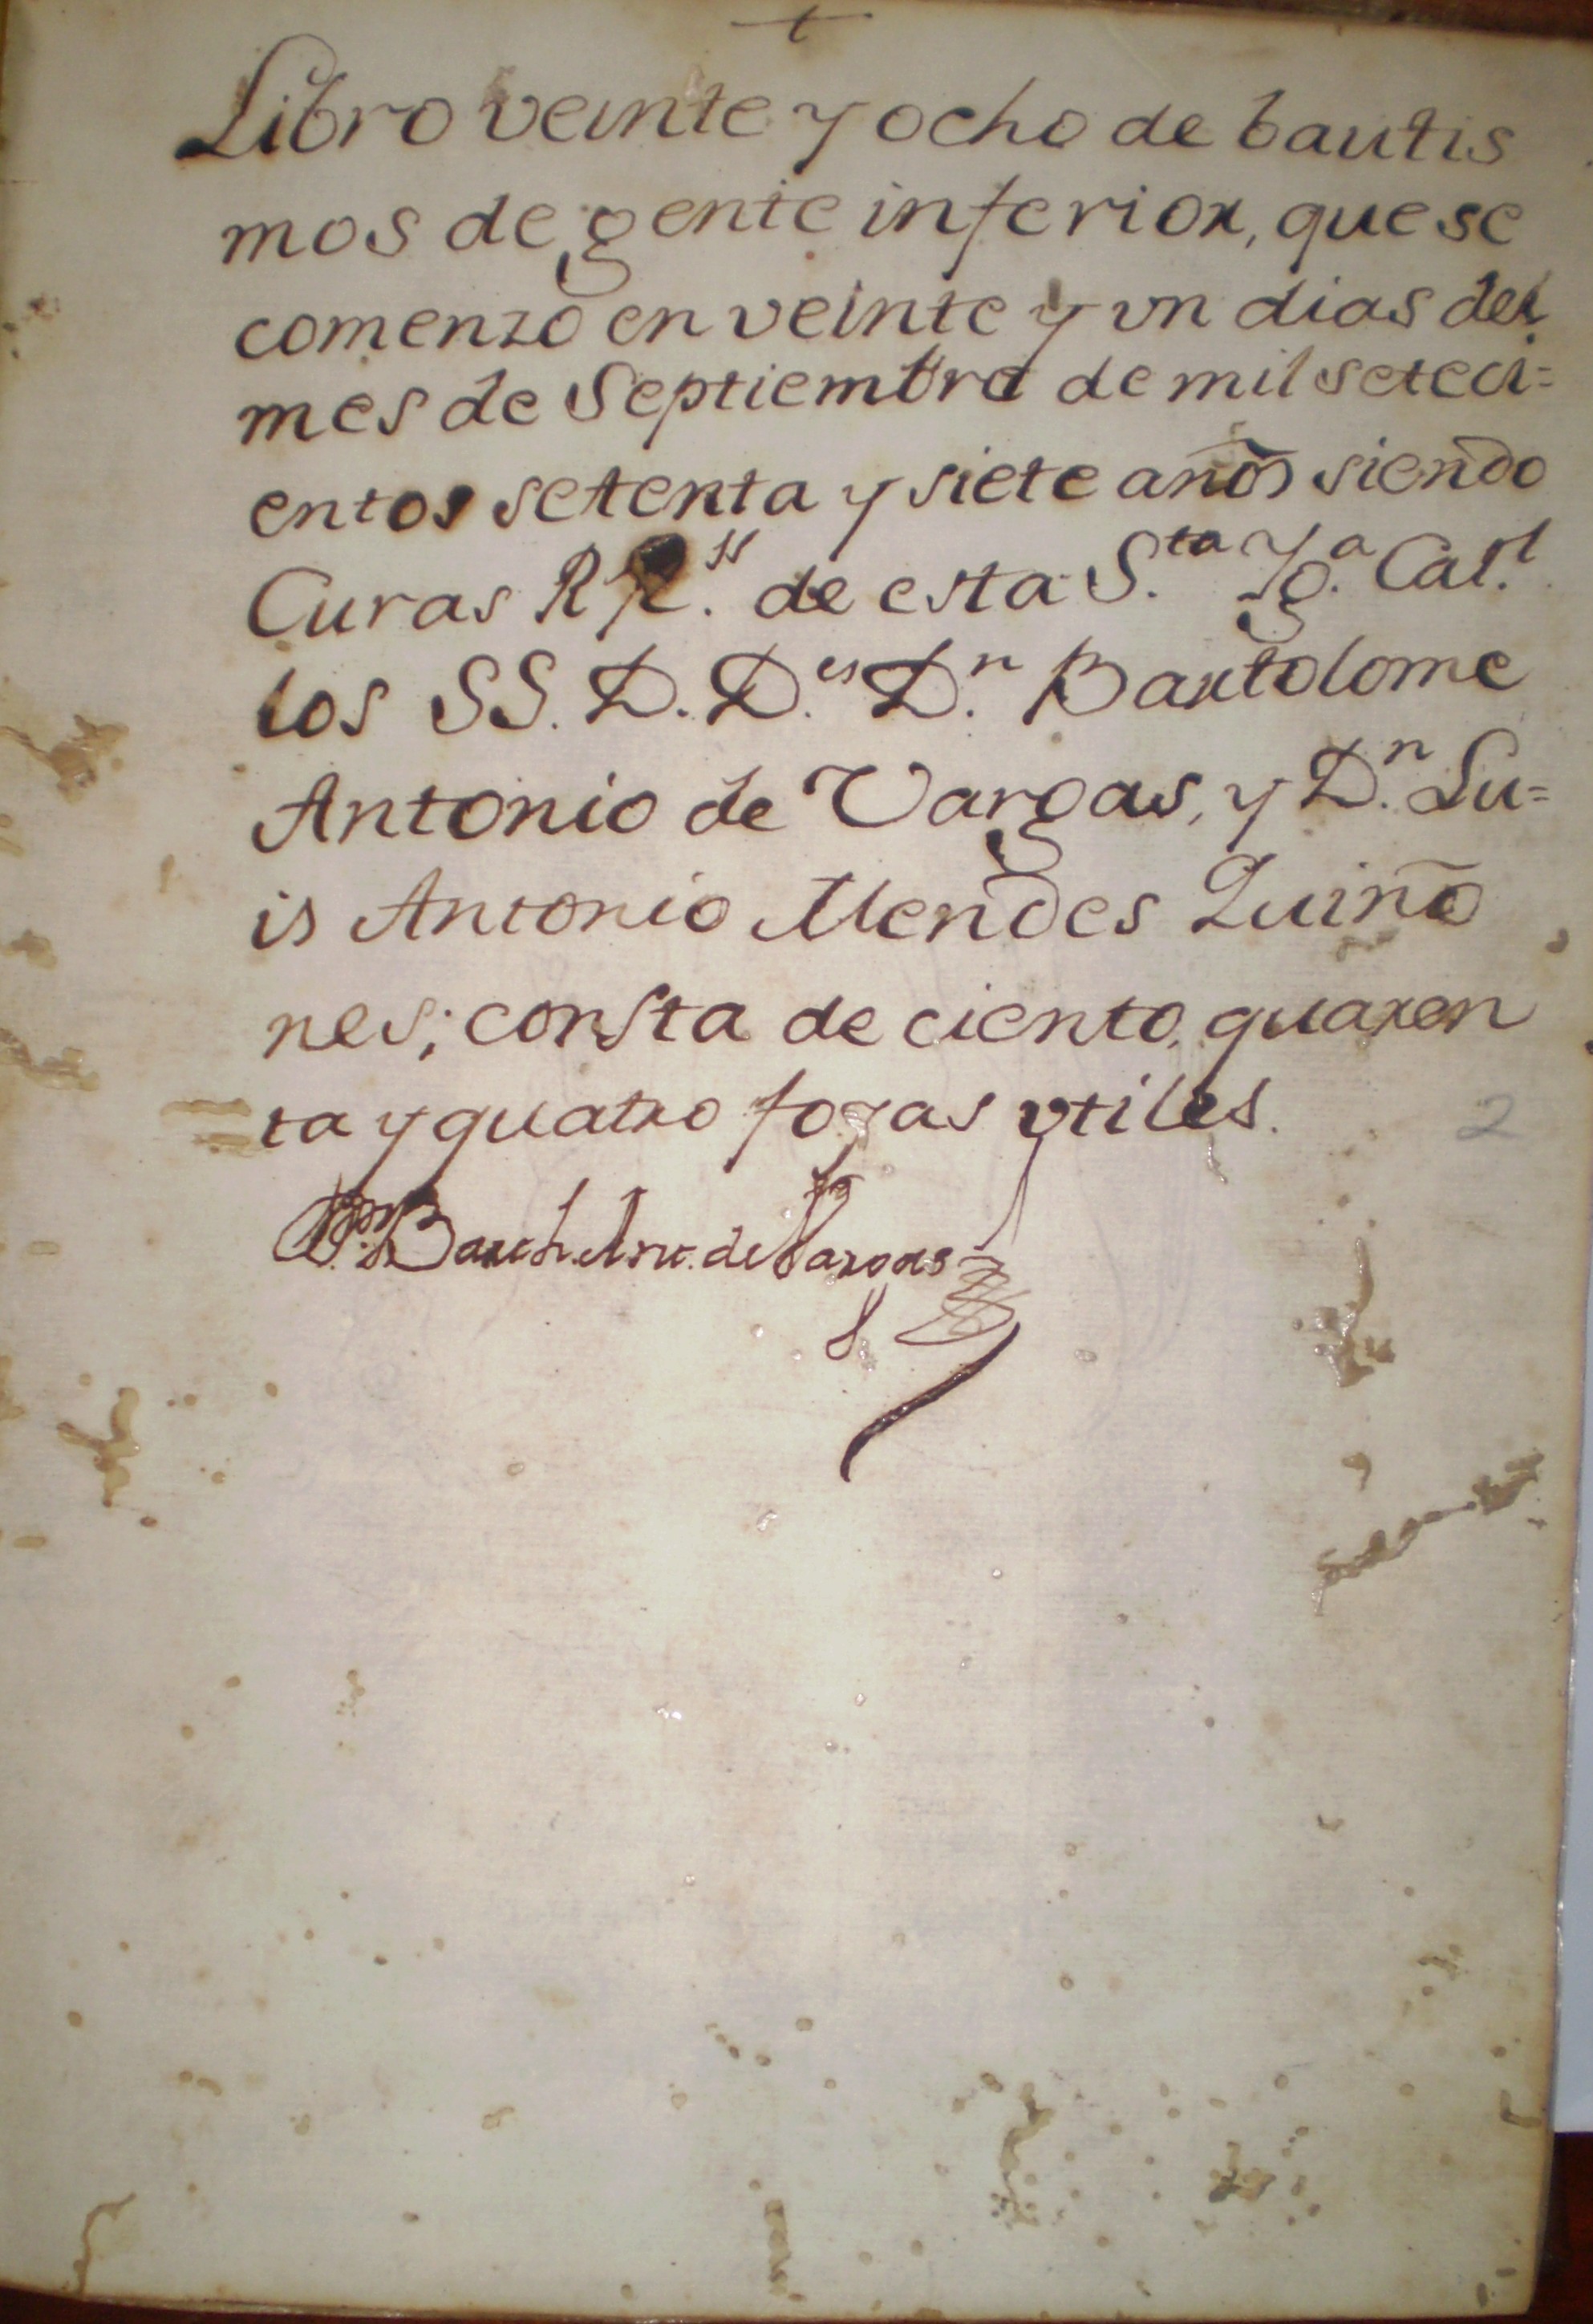 †
Libro veinte y ocho de bautis
mos de gente inferior, que se
comenzo en veinte y vn dias del
mes de Septiembre de mil seteci=
entos setenta y siete años siendo
Curas RR.ˢˢ de esta S.ᵗᵃ Yg.ᵃ Cat.ˡ
los SS. D. D.ᵉˢ D.ⁿ Bartolome
Antonio de Vargas, y D.ⁿ Lu=
is Antonio Mendes Quiño
nes; consta de ciento, quaren
ta y quatro foxas vtiles.
2
de Vargas